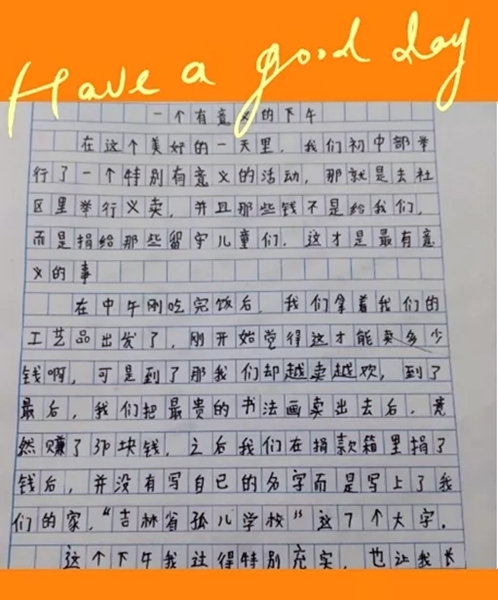 Have a good day
一个有意义的下午
在这个美好的一天里,我们初中部举
行了一个特别有意义的活动,那就是去社
区里举行义卖,并且那些钱不是给我们,
而是捐给那些留守儿童们,这才是最有意
义的事
在中午刚吃完饭后,我们拿着我们的
工艺品出发了,刚开始觉得这才能卖多少
钱啊,可是到了那我们却越卖越欢,到了
最后,我们把最贵的书法画卖出去后,竟
然赚了 块钱,之后我们在捐款箱里捐了
钱后,并没有写自己的名字而是写上了我
们的家,“吉林省孤儿学校”这7个大字。
这个下午我过得特别充实,也让我长